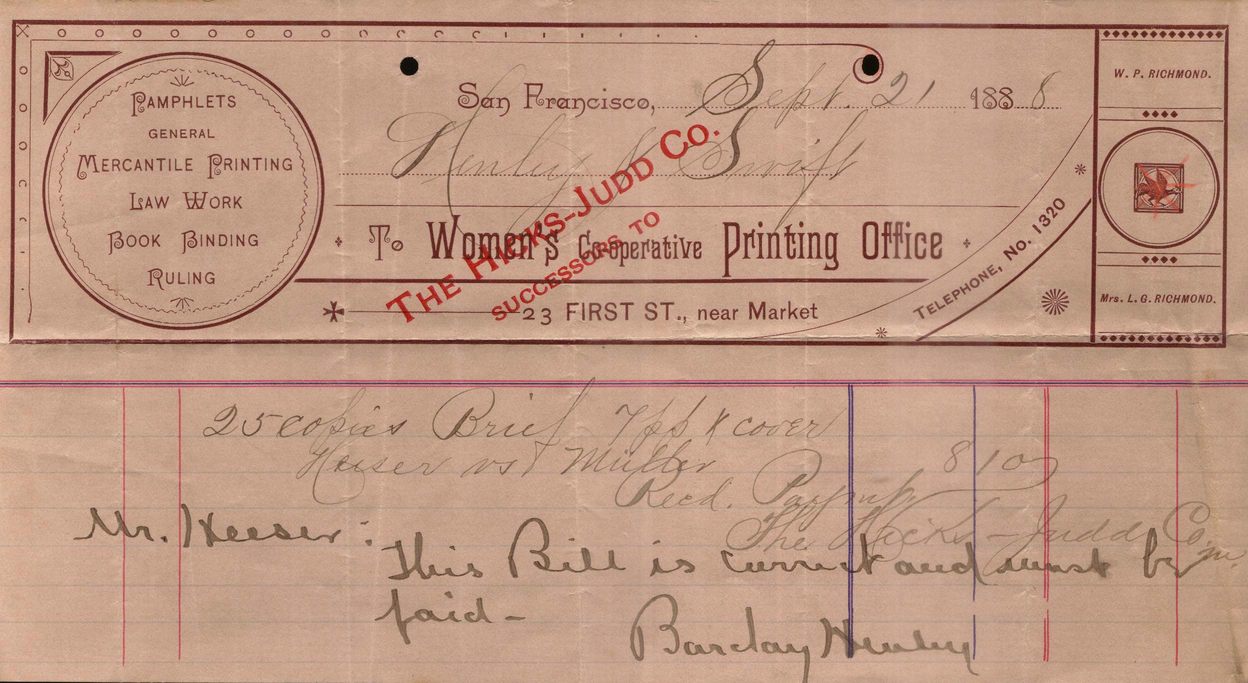 PAMPHLETS
GENERAL
MERCANTILE PRINTING
LAW WORK
BOOK BINDING
RULING
San Francisco, Sept. 21 1888
Henley & Swift
To Women's Co-operative Printing Office
THE HICKS-JUDD CO.
SUCCESSORS TO
23 FIRST ST., near Market
TELEPHONE, No. 1320
W. P. RICHMOND.
Mrs. L. G. RICHMOND.
25 copies Brief 7 pp & cover
Heeser vs Muller 8 10
Recd. Paymt
The Hicks-Judd Co.
Mr. Heeser:
This Bill is correct and must be
paid-
Barclay Henley